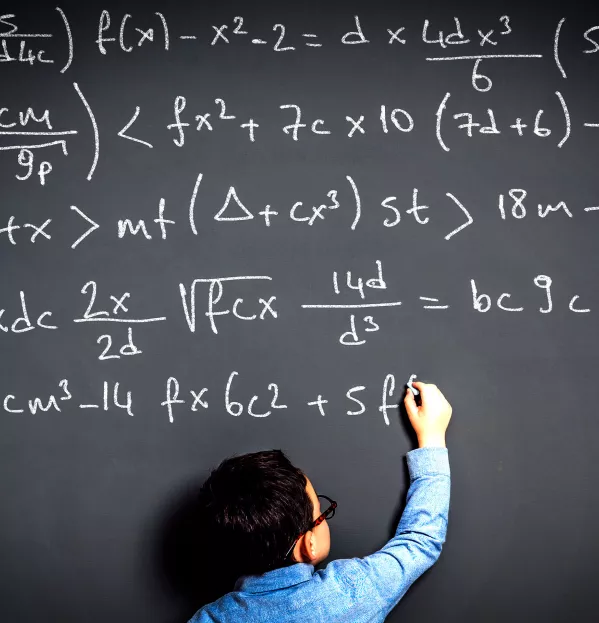 5/d4c) f(x) - x² - 2 = d x 4dx³/6 (5
cm/9p) < fx² + 7c x 10 (7d+6) -
+x > mt (Δ + cx³) st > 18m -
xdc 2x/2d √fcx 14d/d³ = bc9c
cm³ - 14 fx 6c2 + 5f